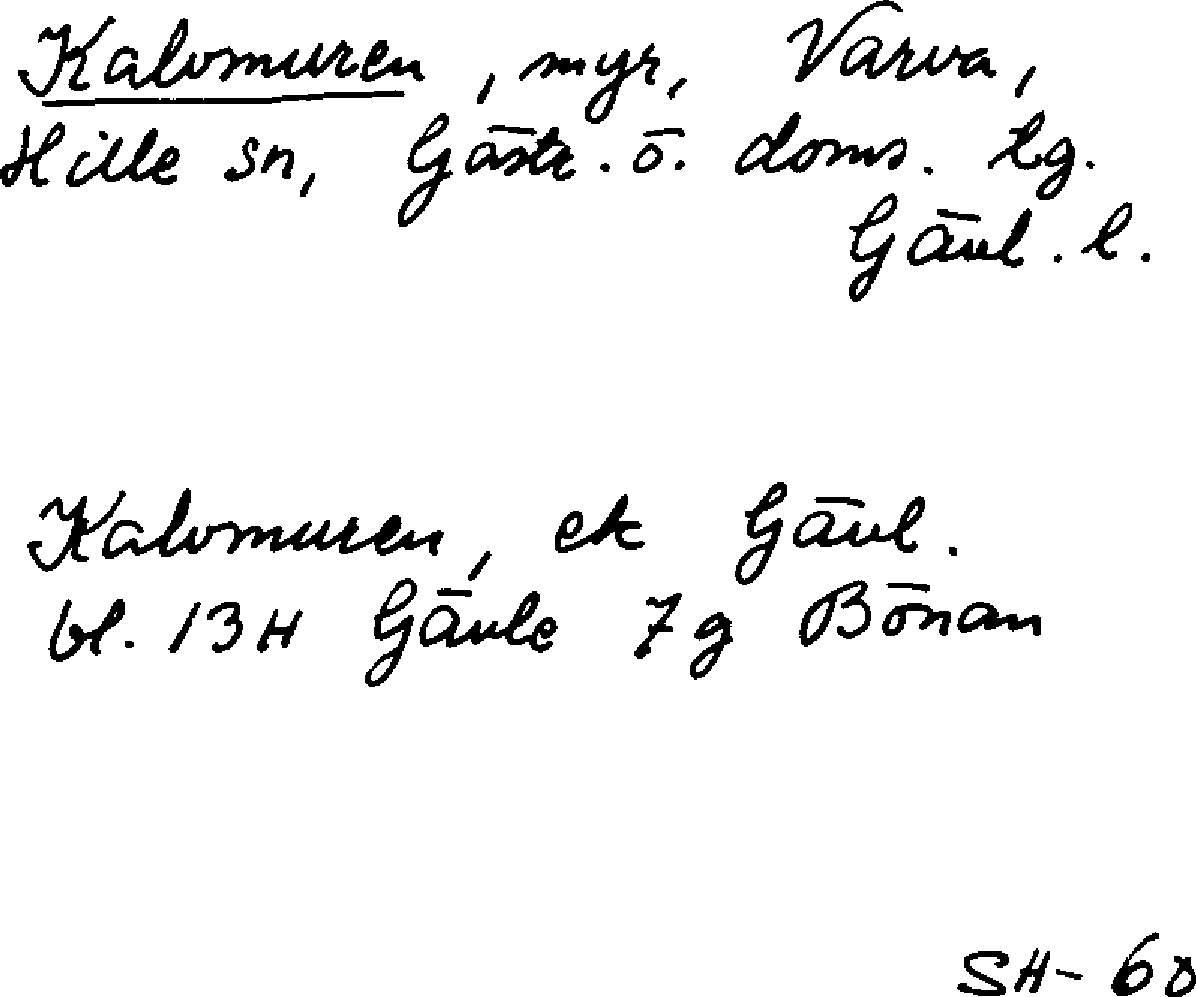 Kalvmuren, myr, Varva,
Hille sn, Gästr. ö. doms. tg.
Gävl. l.
Kalvmuren, ek Gävl.
bl. 13H Gävle 7g Bönan
SH-60